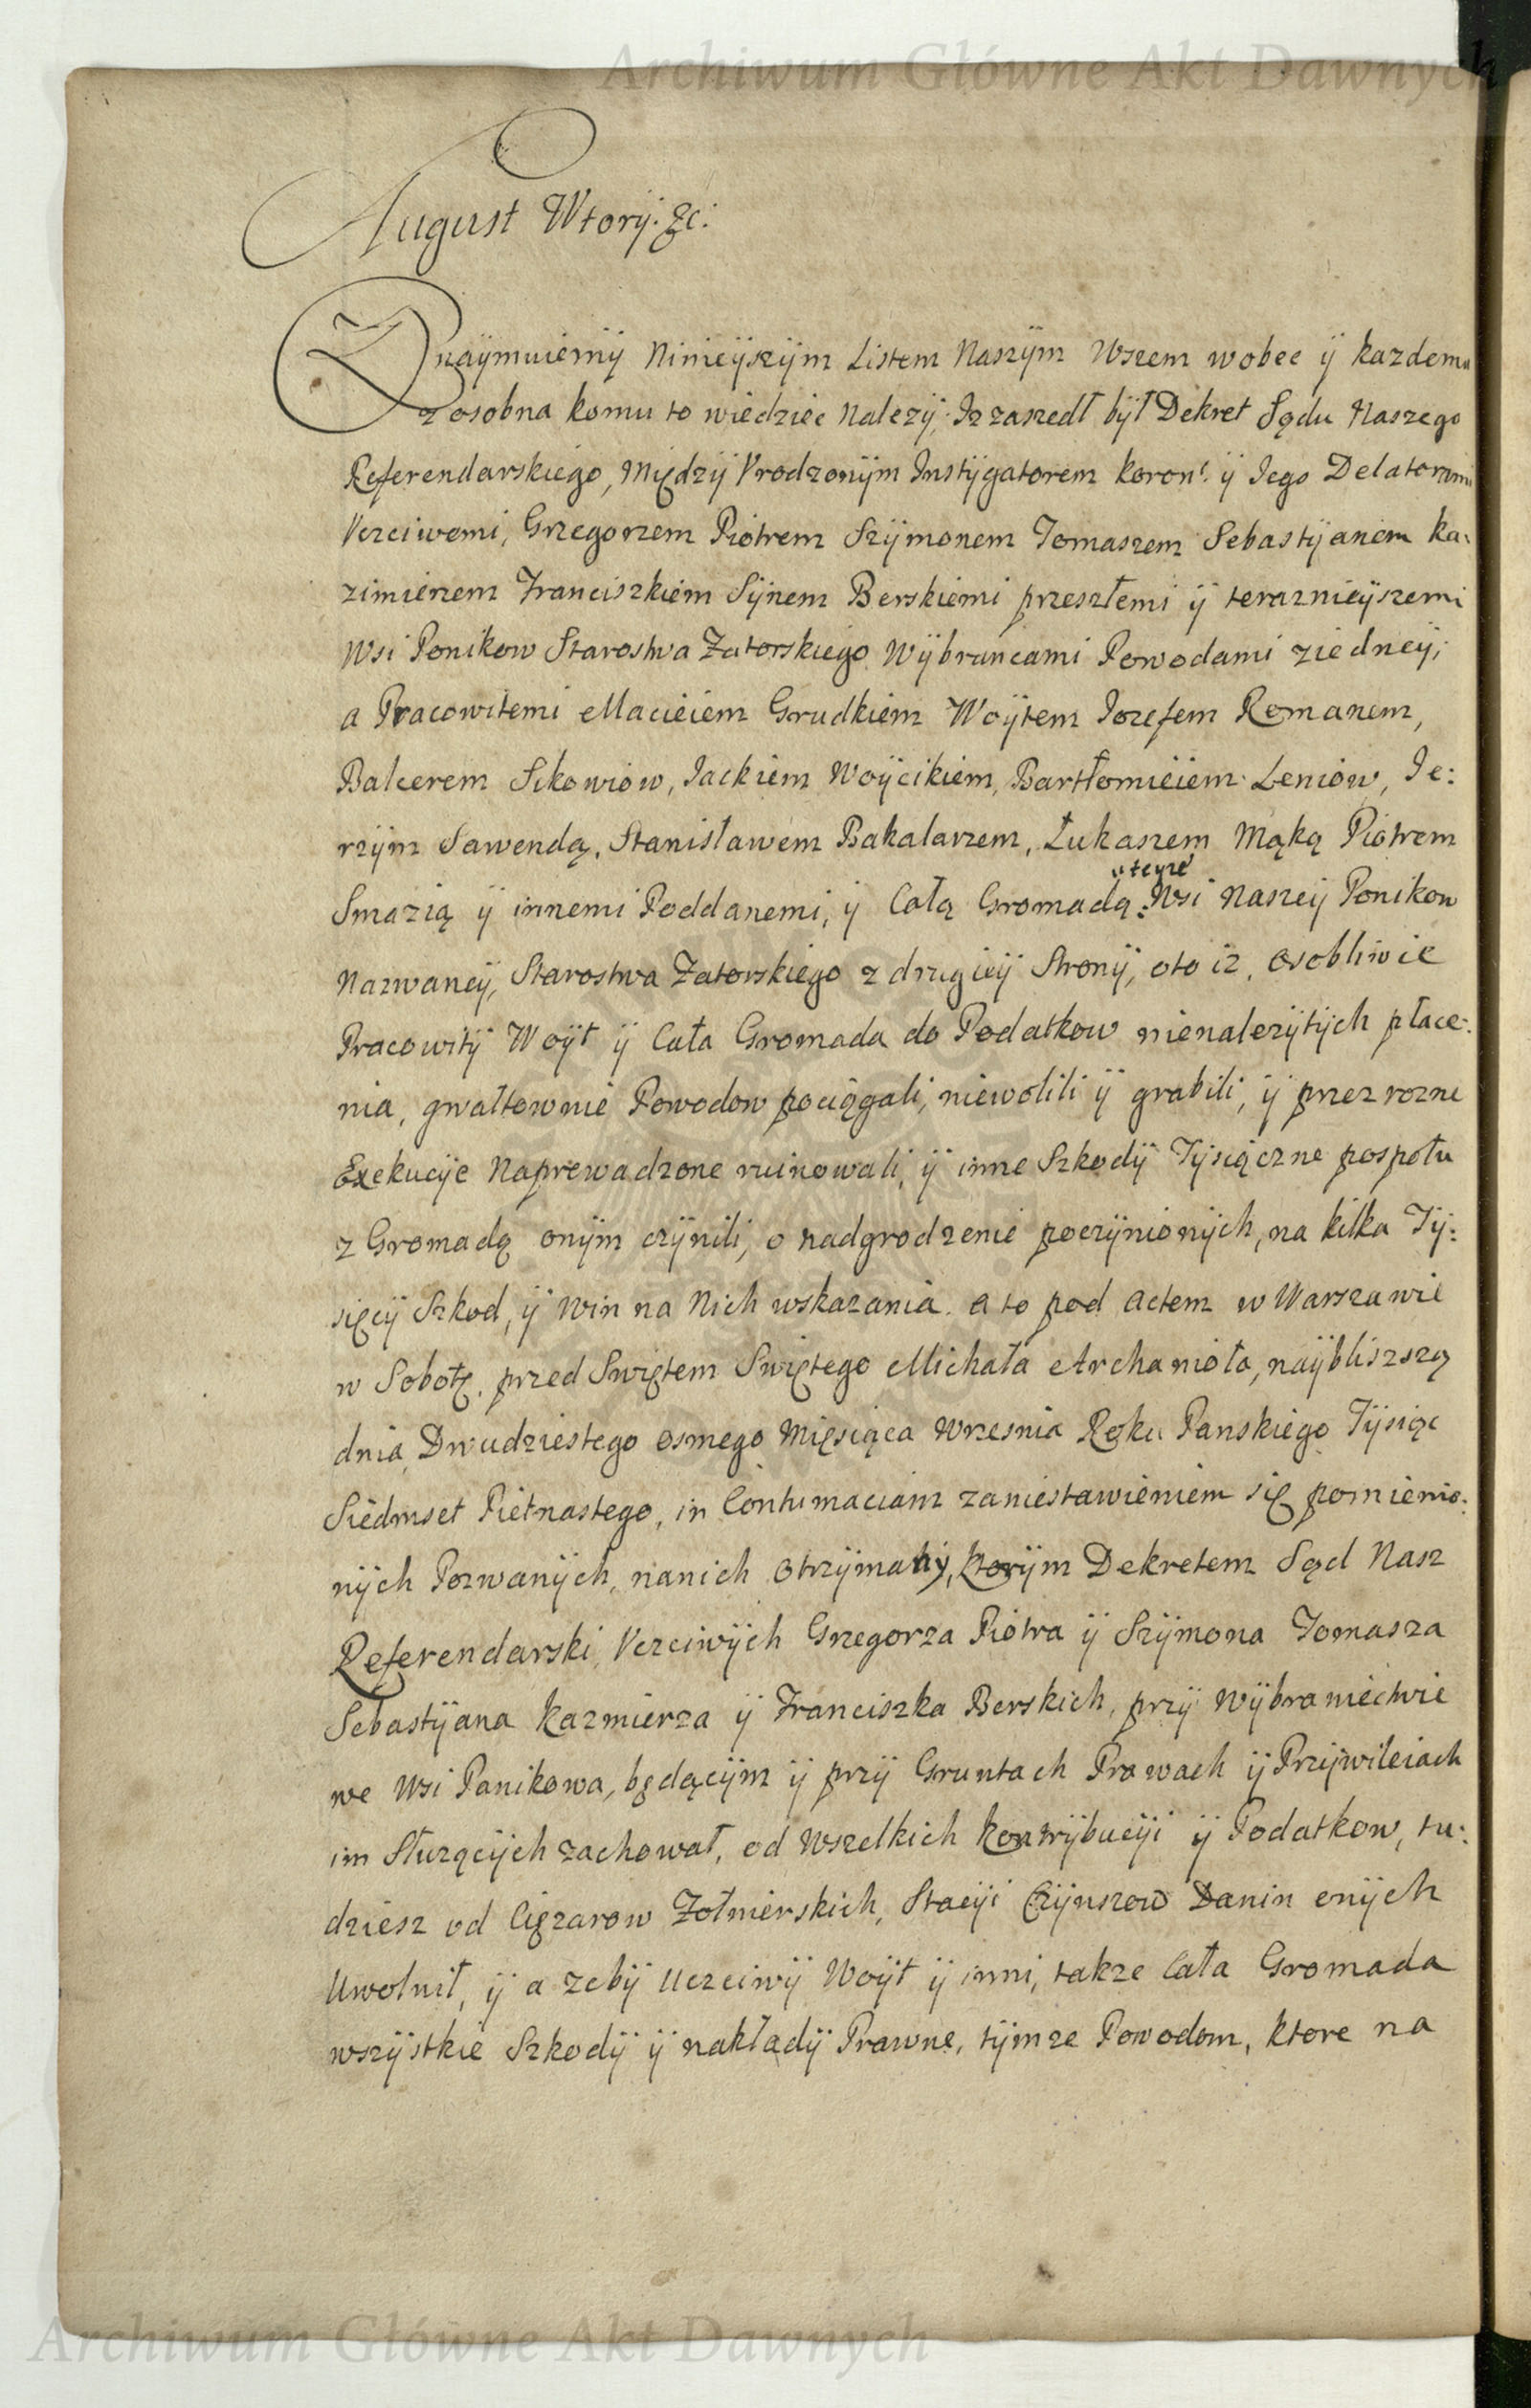 Archiwum Główne Akt Dawnych
August Wtorÿ. &c:
Znaÿmuiemÿ Ninieÿszÿm Listem Naszÿm Wszem wobec ÿ kazdemu
z osobna komu to wiedziec Nalezÿ, Iz zaszedł bÿł Dekret Sądu Naszego
Referendarskiego, Międzÿ Vrodzonÿm Instÿgatorem koron: ÿ Iego Delatorami
Vczciwemi, Grzegorzem Piotrem Szÿmonem Tomaszem Sebastÿanem ka:
zimierzem Franciszkiem Sÿnem Berskiemi przeszłemi ÿ teraznieÿszemi
Wsi Ponikow Starostwa Zatorskiego Wÿbrancami Powodami ziedneÿ,
a Pracowitemi Macieiem Grudkiem Woÿtem Iozefem Romanem,
Balcerem Sikowiow, Iackiem Woÿcikiem, Bartłomieiem Leniow, Ie:
rzÿm Sawendą, Stanisławem Bakalarzem, Łukaszem Mąką Piotrem
Smazią ÿ innemi Poddanemi, ÿ Całą Gromadą: teyze Wsi Naszeÿ Ponikow
Nazwaneÿ, Starostwa Zatorskiego z drugieÿ Stronÿ, oto iz, osobliwie
Pracowitÿ Woÿt ÿ Cała Gromada do Podatkow nienalezÿtÿch płace:
nia, gwałtownie Powodow pociągali, niewolili ÿ grabili, ÿ przez rozne
Exekucÿe Naprowadzone ruinowali, ÿ inne Szkodÿ Tÿsiączne pospołu
z Gromadą onÿm czÿnili, o nadgrodzenie poczÿnionÿch, na kilka Tÿ:
sięcÿ Szkod, ÿ Win na Nich wskazania. a to pod Actem w Warszawie
w Sobotę, przed Swiętem Swiętego Michała Archanioła, naÿbliszszą
dnia Dwudziestego osmego Mięsiąca Wrzesnia Roku Panskiego Tÿsiąc
Siedmset Pietnastego, in Contumaciam zaniestawieniem się pomienio:
nÿch Pozwanÿch, nanich otrzÿmanÿ, ktorÿm Dekretem Sąd Nasz
Referendarski, Vczciwÿch Grzegorza Piotra ÿ Szÿmona Tomasza
Sebastÿana Kazmierza ÿ Franciszka Berskich, przÿ Wÿbraniectwie
we Wsi Panikowa, będącÿm ÿ przÿ Gruntach Prawach ÿ Przÿwileiach
im Służącÿch zachował, od Wszelkich kontrÿbucÿi ÿ Podatkow, tu:
dziesz od Cięzarow Żołnierskich, Stacÿi Czÿnszow Danin onÿch
Uwolnił, ÿ a zebÿ Uczciwÿ Woÿt ÿ inni, takze Cała Gromada
wszÿstkie Szkodÿ ÿ nakładÿ Prawne, tÿmze Powodom, ktore na
Archiwum Główne Akt Dawnych